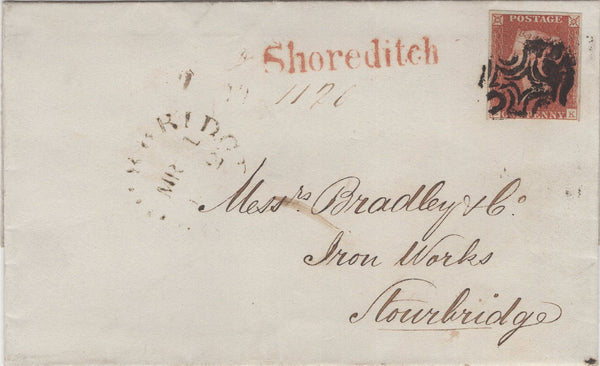 Shoreditch
POSTAGE
1126
K
Messrs Bradley & Co.
Iron Works
Stourbridge